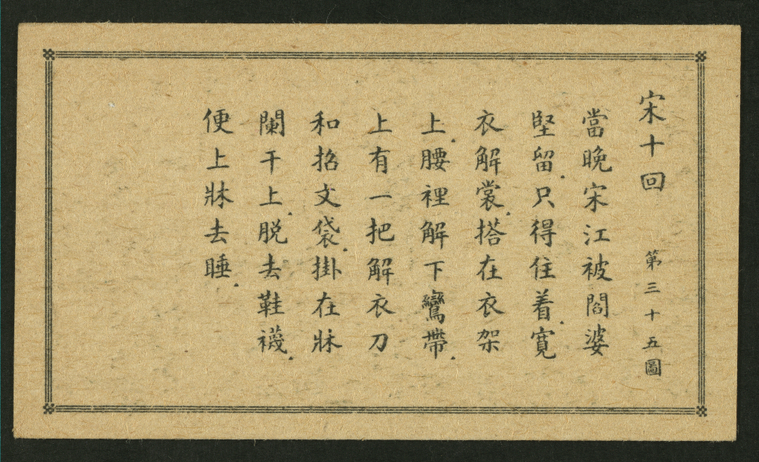 宋十回 第三十五圖
當晚宋江被閻婆
堅留.只得住着.寬
衣解裳.搭在衣架
上.腰裡解下鸞帶.
上有一把解衣刀
和招文袋.掛在牀
闌干上.脫去鞋襪.
便上牀去睡.